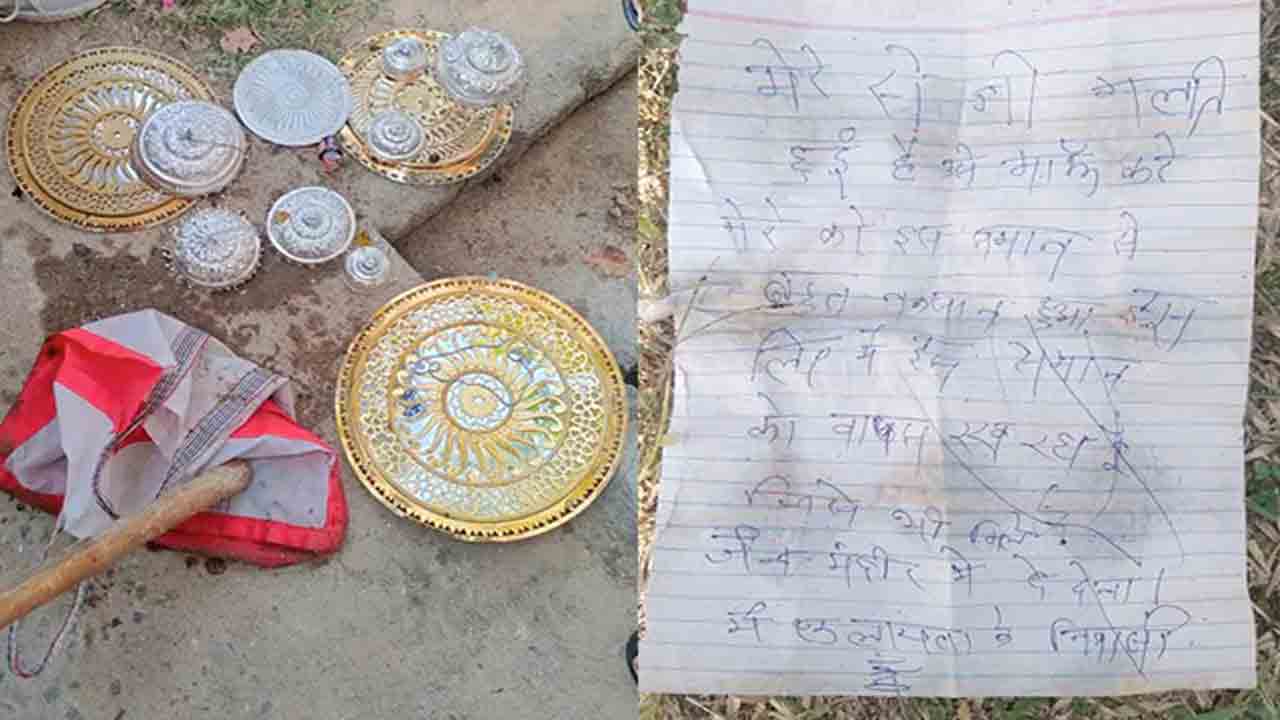 मेरे से जो गलती
हुई है मुझे माफ करे
मेरे को इस समान से
बहुत नुकसान हुआ इस
लिए में इस समान
को वापस रख रहा हूं
जिसे भी मिले
जैन मंदीर में दे देना।
में निवासी
हूँ